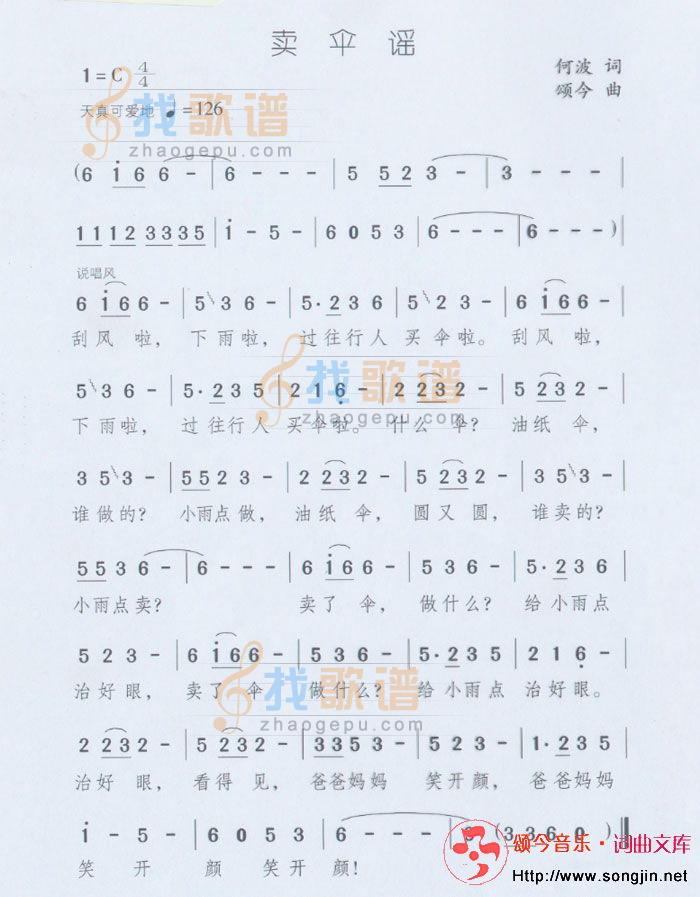 卖伞谣
1=C 4/4
何波 词
颂今 曲
天真可爱地 ♩=126
找歌谱
zhaogepu.com
(6 i 6 6 - | 6 - - - | 5 5 2 3 - | 3 - - - |
1 1 1 2 3 3 3 5 | i - 5 - | 6 0 5 3 | 6 - - - | 6 - - - )|
说唱风
6 i 6 6 - | 5 3 6 - | 5· 2 3 6 | 5 2 3 - | 6 i 6 6 - |
刮风 啦, 下雨啦, 过往行人 买伞啦。 刮风 啦,
5 3 6 - | 5· 2 3 5 | 2 1 6 - | 2 2 3 2 - | 5 2 3 2 - |
下雨啦, 过往行人 买伞啦。 什么 伞? 油纸 伞,
找歌谱
zhaogepu.com
3 5 3 - | 5 5 2 3 - | 2 2 3 2 - | 5 2 3 2 - | 3 5 3 - |
谁做的? 小雨点做, 油纸 伞, 圆又圆, 谁卖的?
5 5 3 6 - | 6 - - - | 6 i 6 6 - | 5 3 6 - | 5· 2 3 6 |
小雨点卖? 卖了 伞, 做什么? 给小雨点
5 2 3 - | 6 i 6 6 - | 5 3 6 - | 5· 2 3 5 | 2 1 6 - |
治好眼, 卖了 伞 做什么? 给小雨点 治好眼。
找歌谱
zhaogepu.com
2 2 3 2 - | 5 2 3 2 - | 3 3 5 3 | 5 2 3 - | 1· 2 3 5 |
治好 眼, 看得 见, 爸爸妈妈 笑开颜, 爸爸妈妈
i - 5 - | 6 0 5 3 | 6 - - - | 6 (3 3 6 0) ‖
笑 开 颜 笑开 颜!
颂今音乐·词曲文库
Http://www.songjin.net